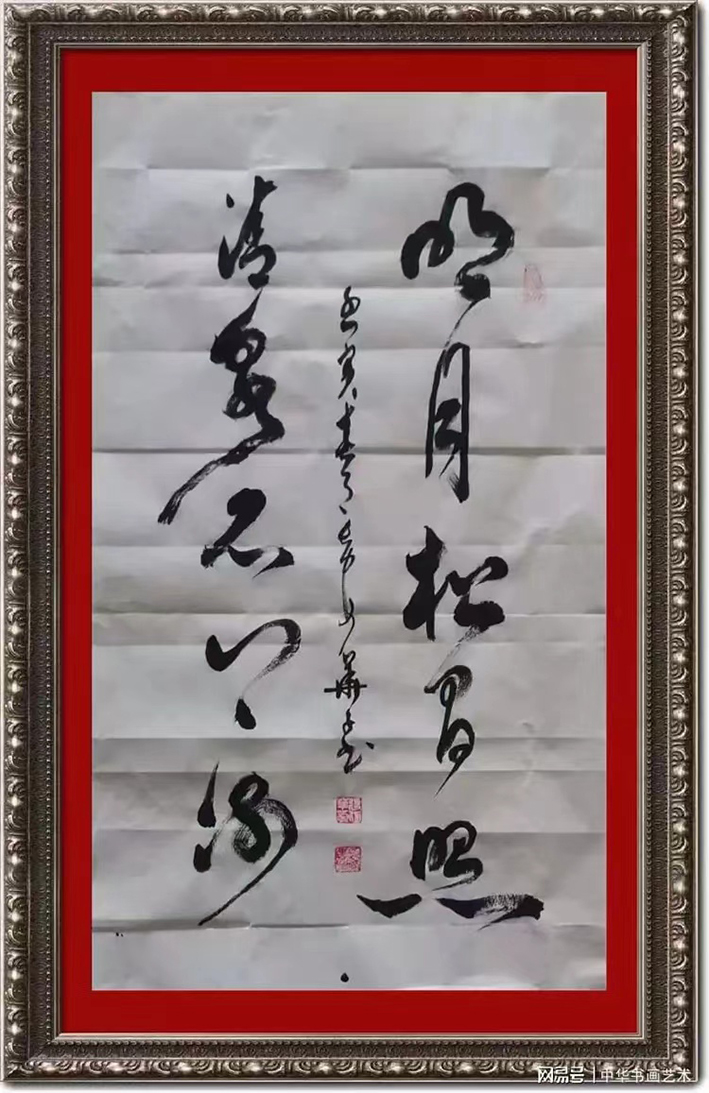 明月松间照
清泉石上流
网易号 | 中华书画艺术